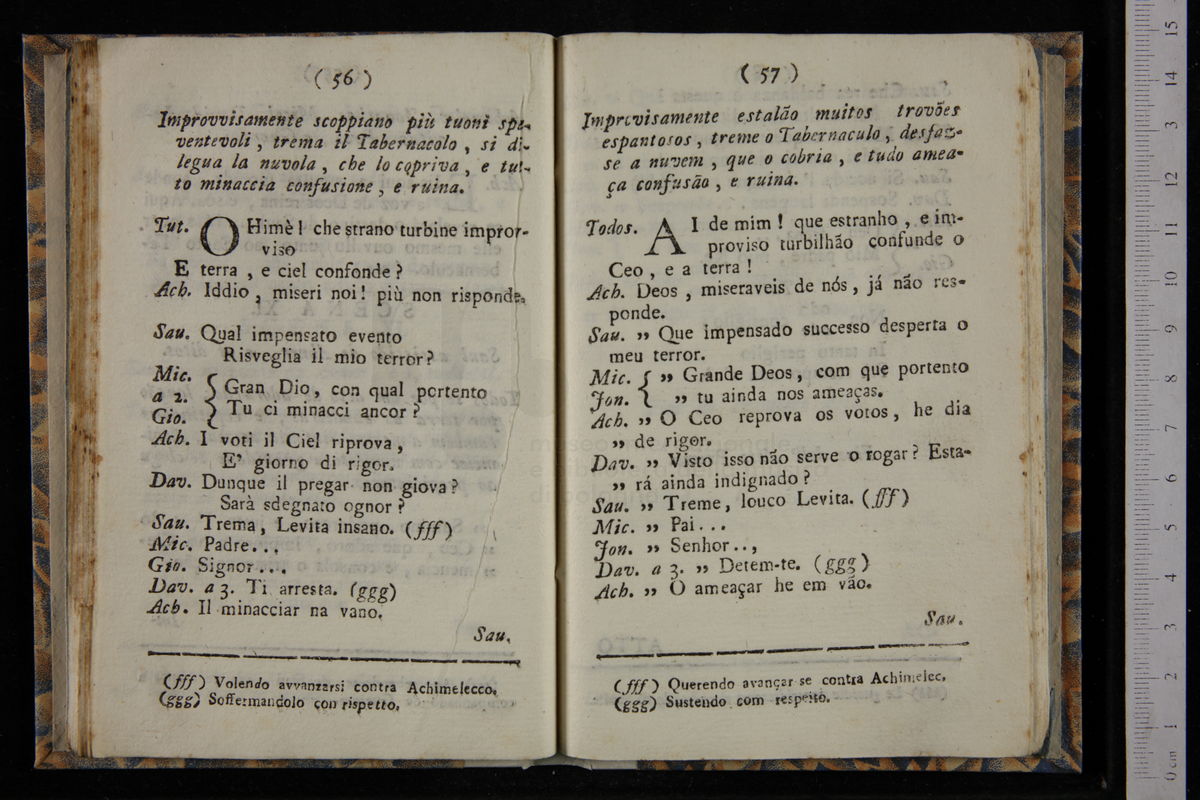 (56)
Improvvisamente scoppiano più tuoni spa-
ventevoli, trema il Tabernacolo, si di-
legua la nuvola, che lo copriva, e tut-
to minaccia confusione, e ruina.
Tut. O Himè! che strano turbine impror-
viso
E terra, e ciel confonde?
Ach. Iddio, miseri noi! più non risponde.
Sau. Qual impensato evento
Risveglia il mio terror?
Mic.
a 2. { Gran Dio, con qual portento
Gio. } Tu ci minacci ancor?
Ach. I voti il Ciel riprova,
E' giorno di rigor.
Dav. Dunque il pregar non giova?
Sarà sdegnato ognor?
Sau. Trema, Levita insano. (fff)
Mic. Padre...
Gio. Signor...
Dav. a 3. Ti arresta. (ggg)
Ach. Il minacciar na vano.
Sau.
(fff) Volendo avvanzarsi contra Achimelecco.
(ggg) Soffermandolo con rispetto.
(57)
Imprcvisamente estalão muitos trovões
espantosos, treme o Tabernaculo, desfaz-
se a nuvem, que o cobria, e tudo amea-
ça confusão, e ruina.
Todos. A I de mim! que estranho, e im-
proviso turbilhão confunde o
Ceo, e a terra!
Ach. Deos, miseraveis de nós, já não res-
ponde.
Sau. „ Que impensado successo desperta o
meu terror.
Mic. { „ Grande Deos, com que portento
Jon. { „ tu ainda nos ameaças.
Ach. „ O Ceo reprova os votos, he dia
„ de rigor.
Dav. „ Visto isso não serve o rogar? Esta-
„ rá ainda indignado?
Sau. „ Treme, louco Levita. (fff)
Mic. „ Pai...
Jon. „ Senhor..,
Dav. a 3. „ Detem-te. (ggg)
Ach. „ O ameaçar he em vão.
Sau.
(fff) Querendo avançar se contra Achimelec.
(ggg) Sustendo com respeito.
15
14
13
12
11
10
9
8
7
6
5
4
3
2
1
0 cm